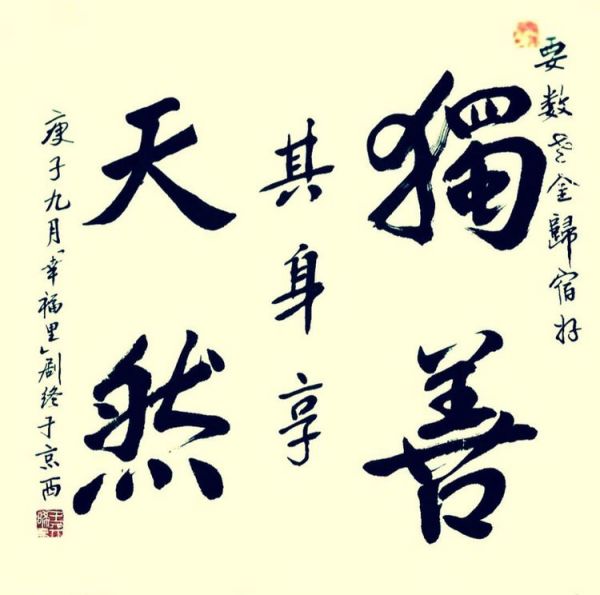 要数老金歸宿好
獨善
其身享
天然
庚子九月“幸福里”劇終于京西